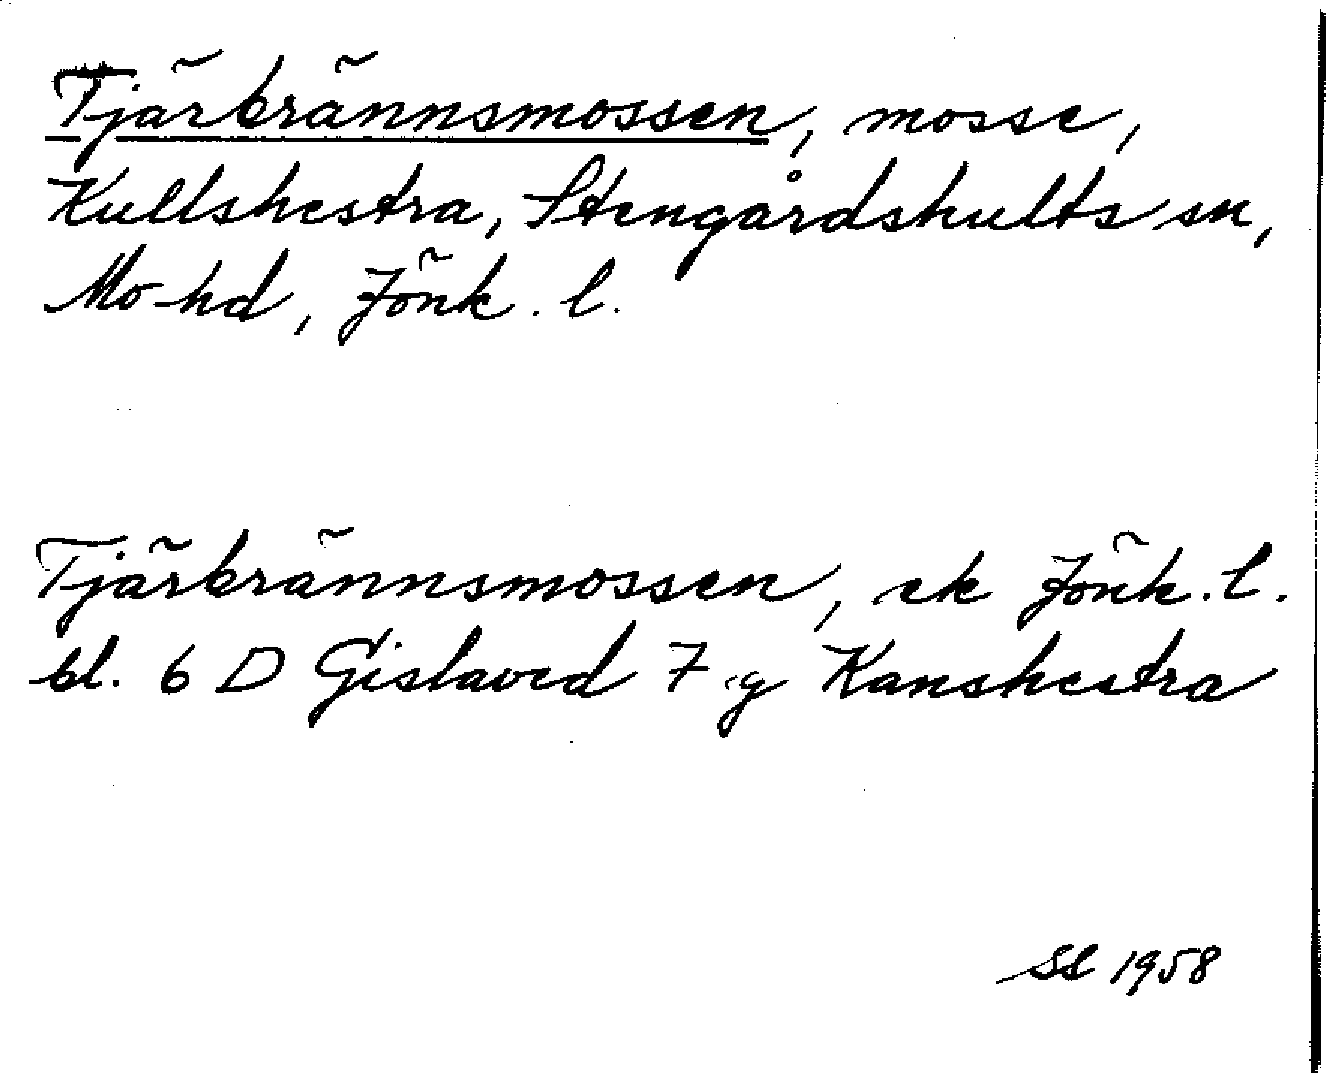 Tjärbrännsmossen, mosse,
Kullshestra, Stengårdshults sn,
Mo hd, Jönk. l.
Tjärbrännsmossen, ek Jönk. l.
bl. 6 D Gislaved 7 g Kanshestra
SL 1958